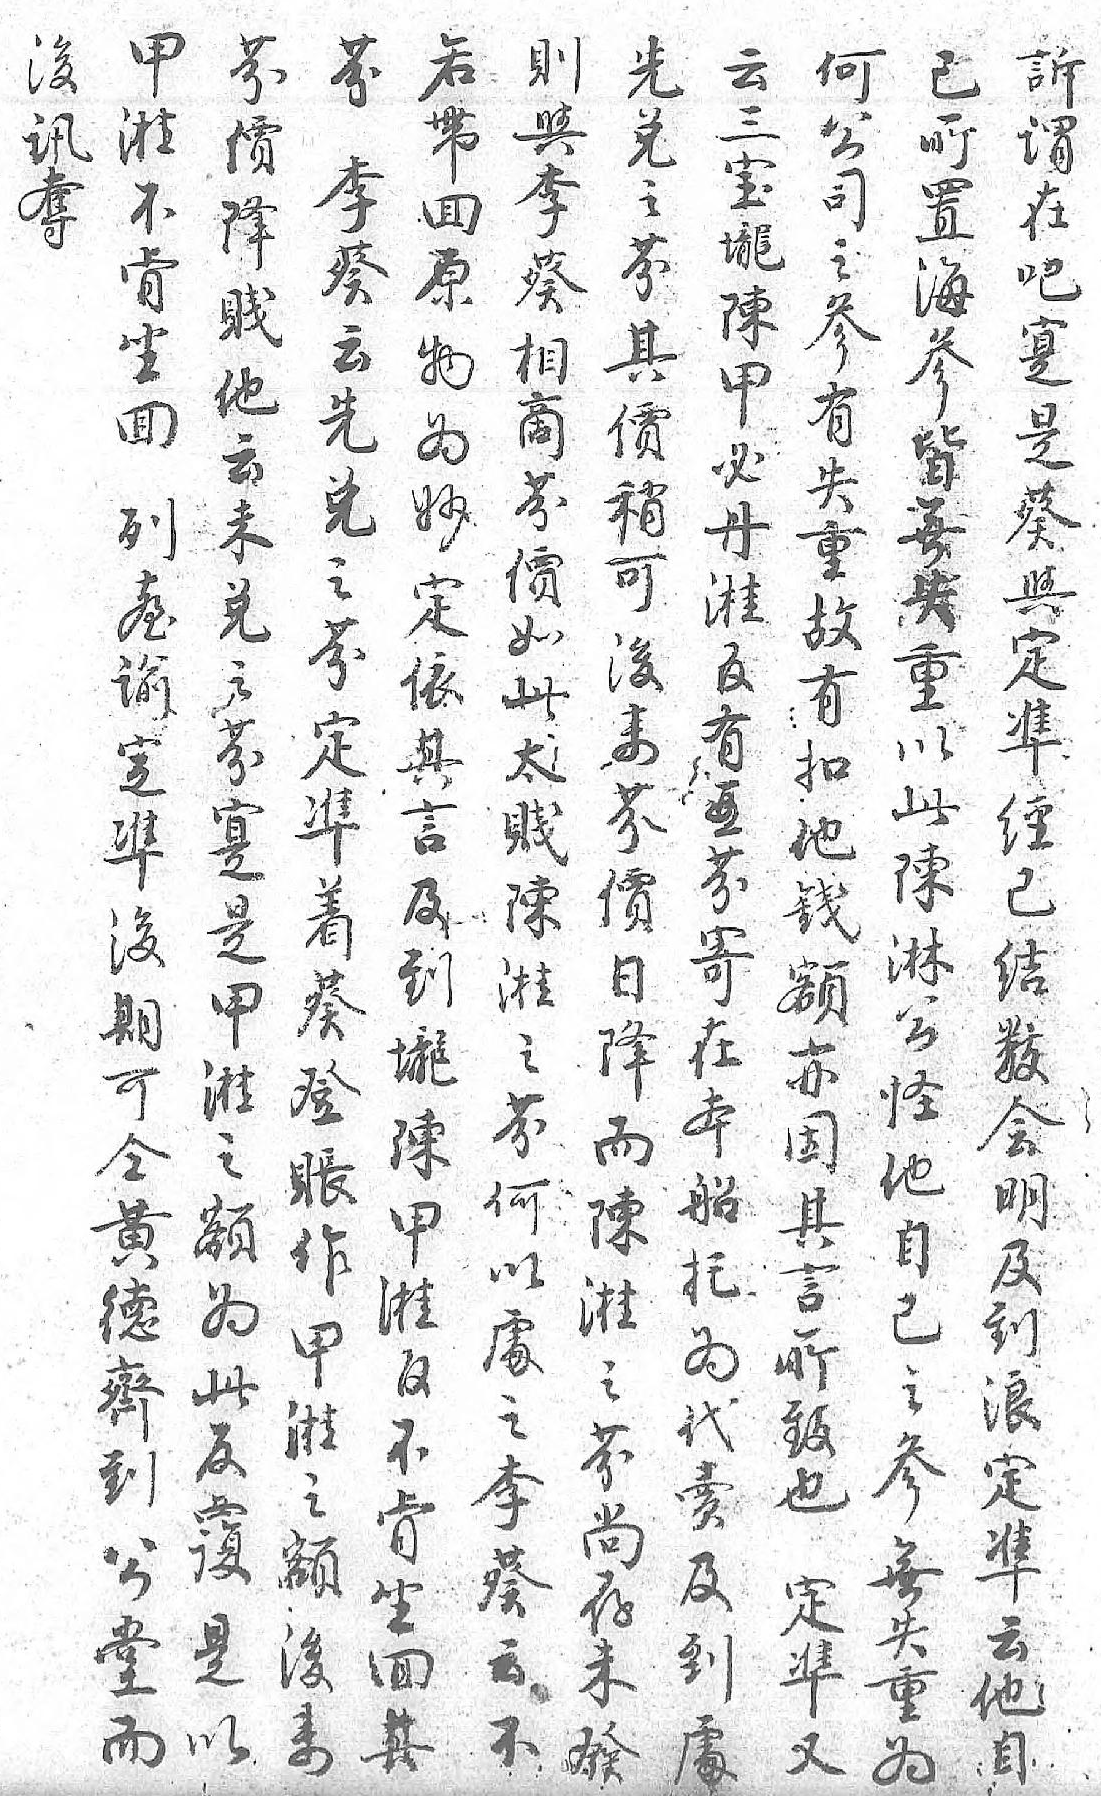 訴謂在吧寔是葵與定準經已結数会明及到浪定準云他自
己所置海參皆無失重以此陳淋公怪他自己之參無失重為
何公司之參有失重故有扣他錢額亦因其言所致也定準又
云三宝壠陳甲必丹溎反有亚芬寄在本船托為代賣及到處
先兌之芬其價稍可後来芬價日降而陳溎之芬尚存未發
則與李葵相商芬價如此太賤陳溎之芬何以處之李葵云不
若帶回原物為妙定依其言及到壠陳甲溎反不肯坐回其
芬李葵云先兌之芬定準着葵登賬作甲溎之額後来
芬價降賤他云未兌之芬寔是甲溎之額為此反覆是以
甲溎不肯坐回列臺諭定準後期可仝黃德齊到公堂而
後訊奪